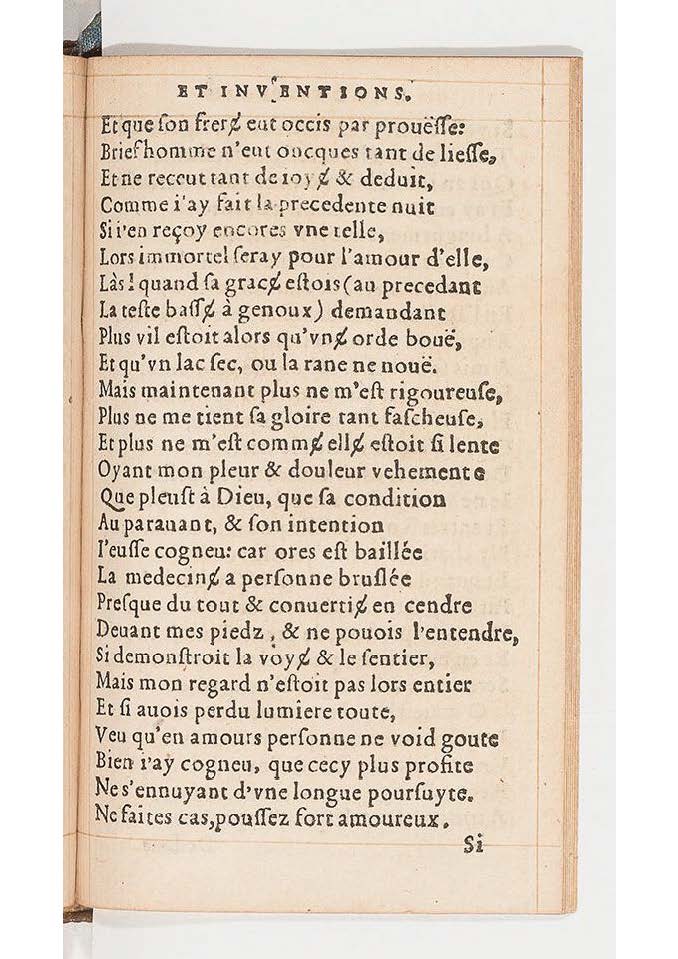 ET INVENTIONS.
Et que son frerɇ eut occis par prouësse:
Brief homme n'eut oncques tant de liesse,
Et ne receut tant de ioyɇ & deduit,
Comme i'ay fait la precedente nuit
Si i'en reçoy encores vne telle,
Lors immortel seray pour l'amour d'elle,
Làs! quand sa gracɇ estois (au precedant
La teste bassɇ à genoux) demandant
Plus vil estoit alors qu'vnɇ orde bouë,
Et qu'vn lac sec, ou la rane ne nouë.
Mais maintenant plus ne m'est rigoureuse,
Plus ne me tient sa gloire tant fascheuse,
Et plus ne m'est commɇ ellɇ estoit si lente
Oyant mon pleur & douleur vehemente
Que pleust à Dieu, que sa condition
Au parauant, & son intention
I'eusse cogneu: car ores est baillée
La medecinɇ a personne bruslée
Presque du tout & conuertiɇ en cendre
Deuant mes piedz, & ne pouois l'entendre,
Si demonstroit la voyɇ & le sentier,
Mais mon regard n'estoit pas lors entier
Et si auois perdu lumiere toute,
Veu qu'en amours personne ne void goute
Bien i'ay cogneu, que cecy plus profite
Ne s'ennuyant d'vne longue poursuyte.
Ne faites cas, poussez fort amoureux.
Si